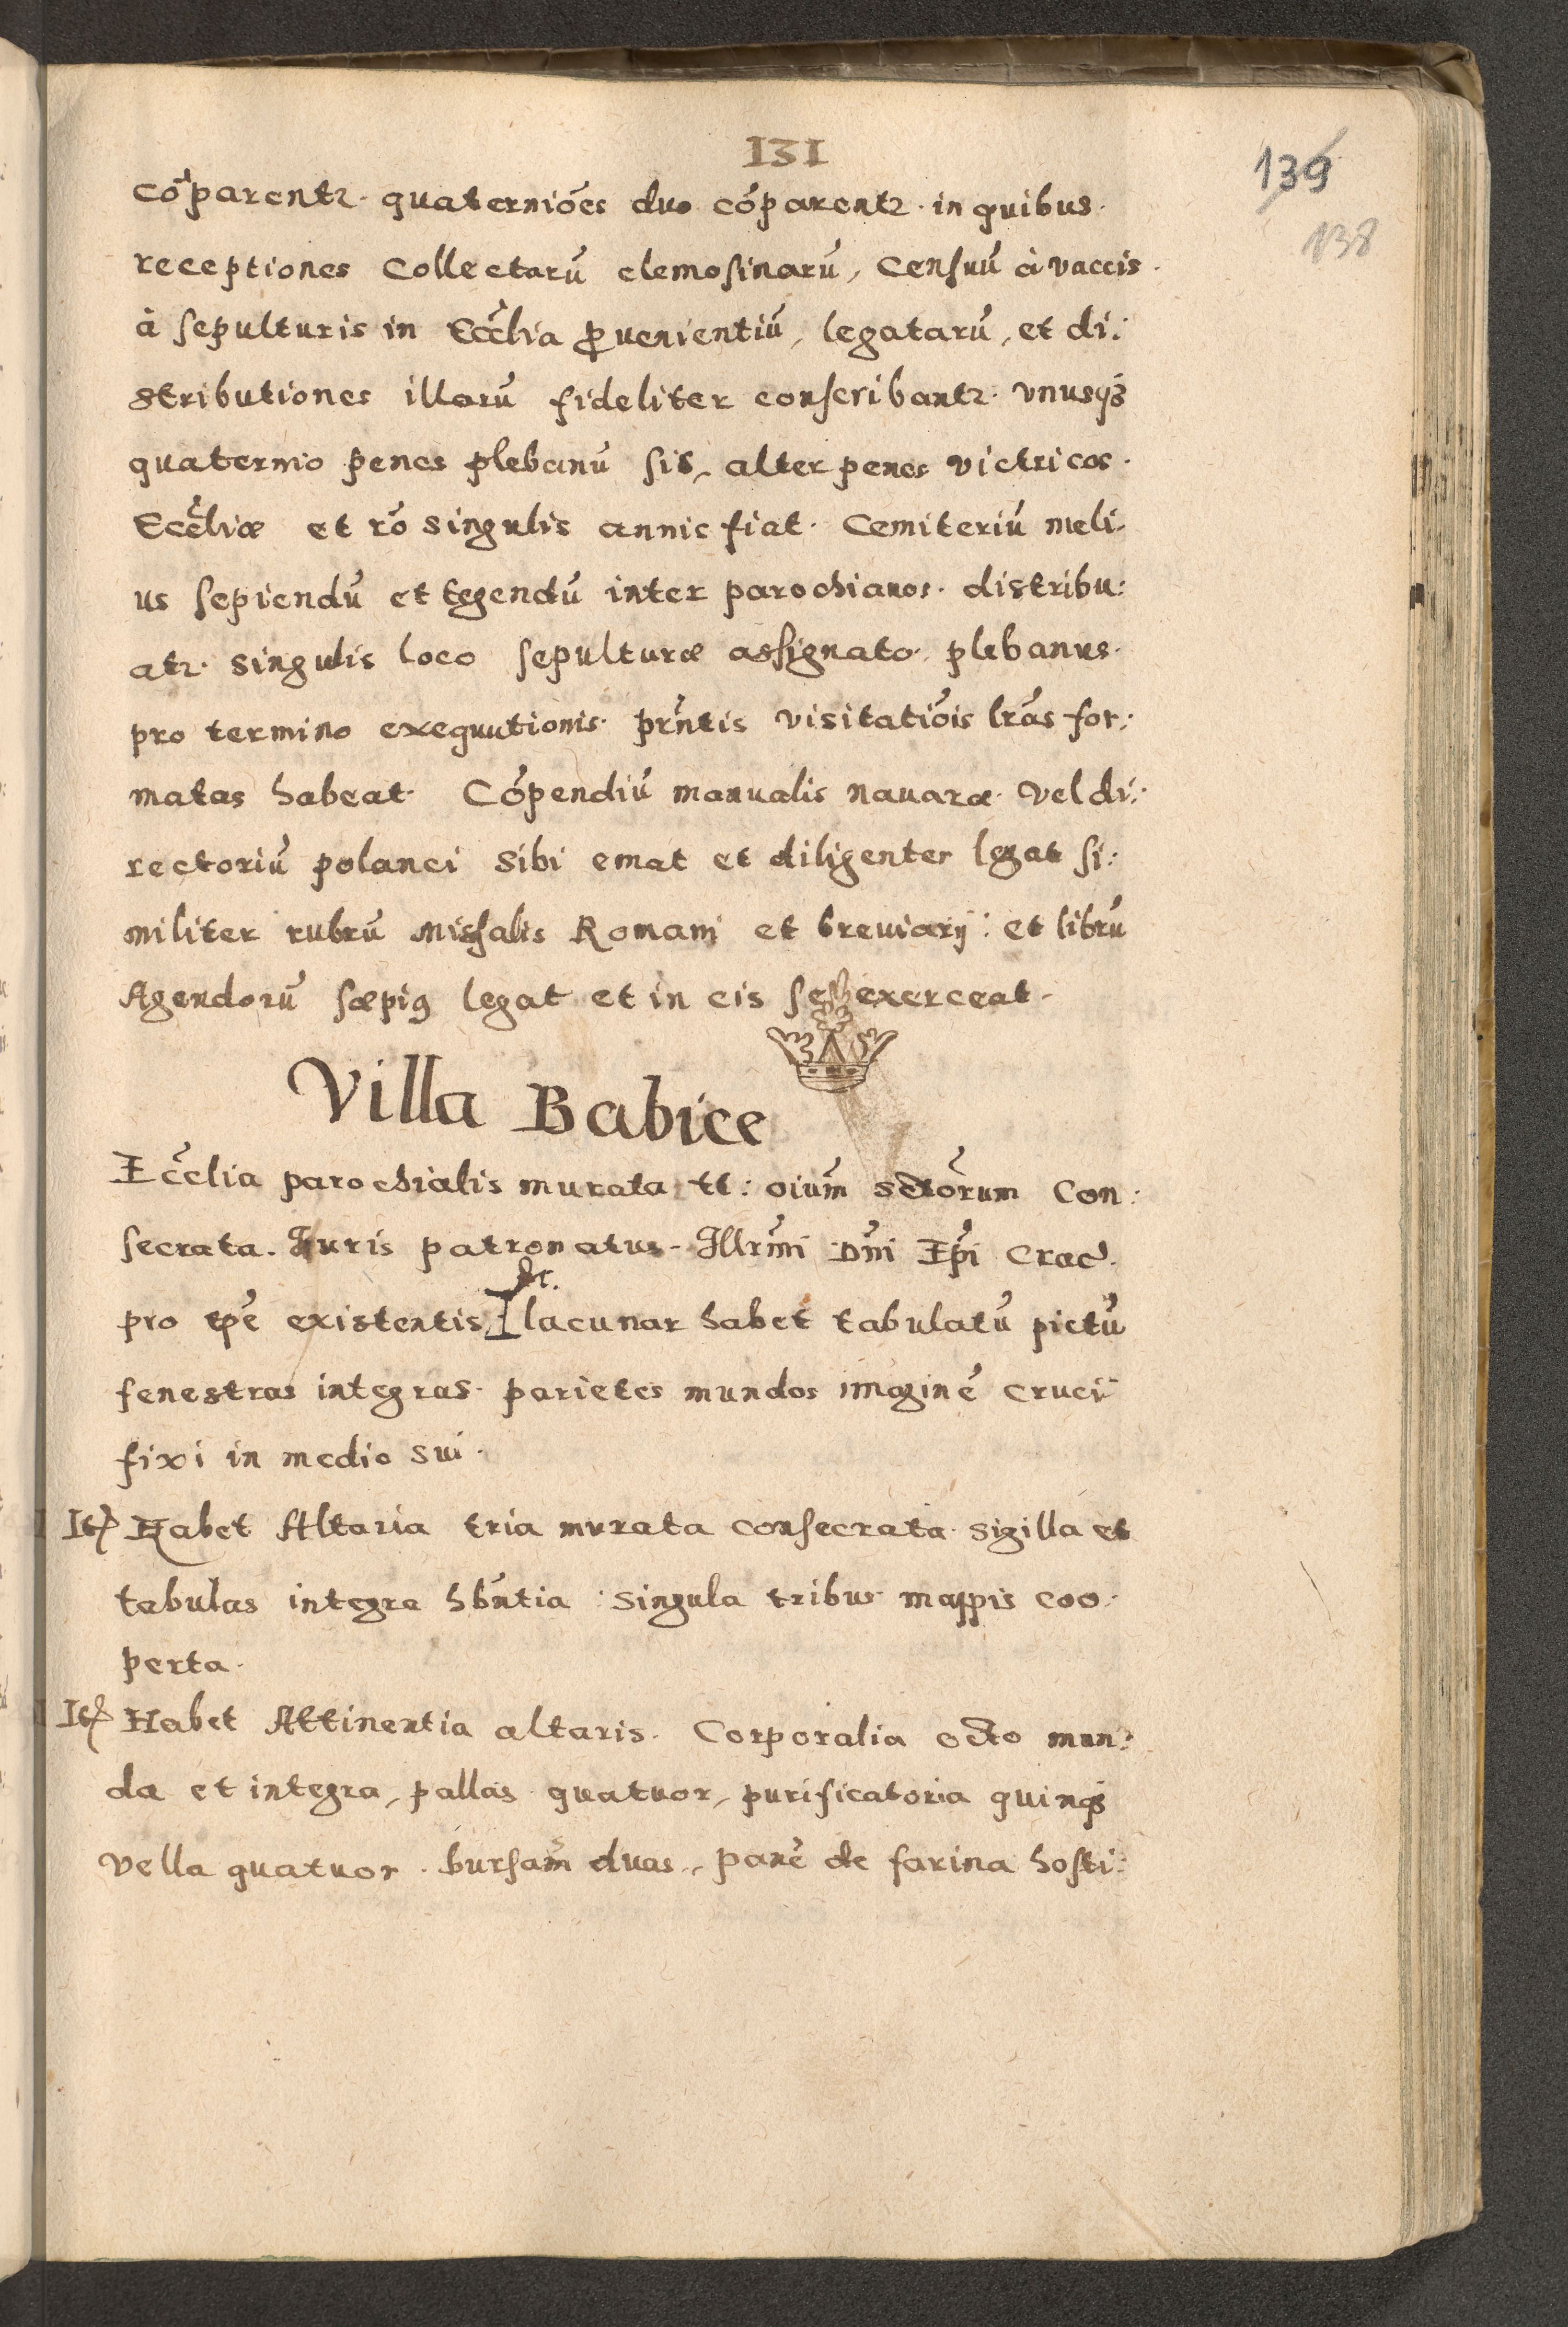 131
139
138
Cōparentr. quaterniōes duo cōparentr. in quibus.
receptiones Collectarū elemosinarū, Censuū à vaccis.
à sepulturis in Eccl̄ia ꝓuenientiū, legatarū, et di:
stributiones illarū fideliter conscribantr. vnusqs
quaternio penes plebanū sit, alter penes victricos.
Eccl̄iæ et rō singulis annis fiat. Cemiteriū meli-
us sepiendū et tegendū inter parochianos. distribu:
atr. singulis loco sepulturæ assignato. plebanus.
pro termino exequutionis. pr̄ntis visitatiōis lrās for:
matas habeat. Cōpendiū manualis nauaræ. Vel di:
rectoriū polanci sibi emat et diligenter legat si:
militer rubrū missalis Romani et breuiarij: et librū
Agendorū sæpiꝰ legat et in eis se exerceat.
Villa Babice
Eccl̄ia parochialis murata tt: oiūm sctōrum Con:
secrata. Iuris patronatus. Illrm̄i Dn̄i Ep̄i Crac.
pro tp̄e existentis, lacunar habet tabulatū pictū
fenestras integras. parietes mundos imaginē cruci
fixi in medio sui.
It. Habet Altaria tria murata consecrata. sigilla et
tabulas integra hbn̄tia: singula tribus mappis coo.
perta.
It. Habet Attinentia altaris. Corporalia octo mun:
da et integra, pallas quatuor, purificatoria quinqꝫ
vella quatuor. bursam duas, panē de farina hosti: